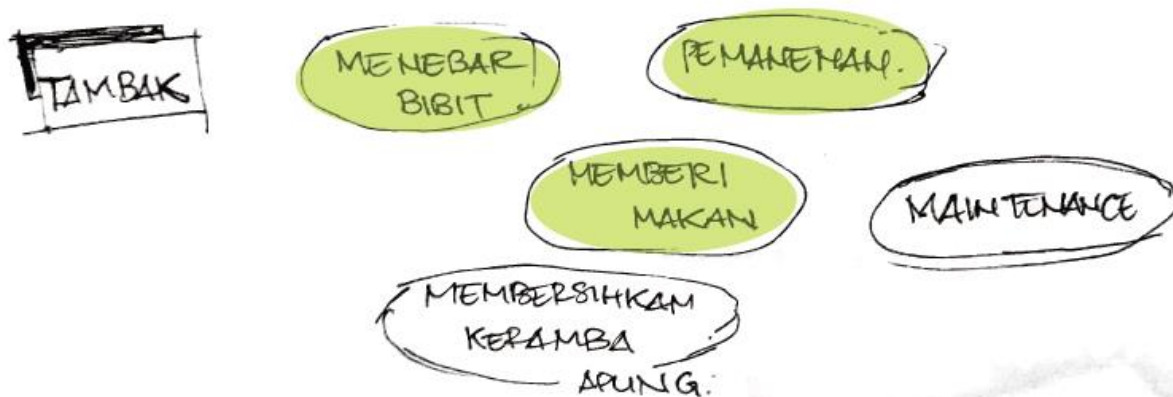 TAMBAK
MENEBAR
BIBIT
PEMANENAN.
MEMBERI
MAKAN
MAINTENANCE
MEMBERSIHKAN
KERAMBA
APUNG.